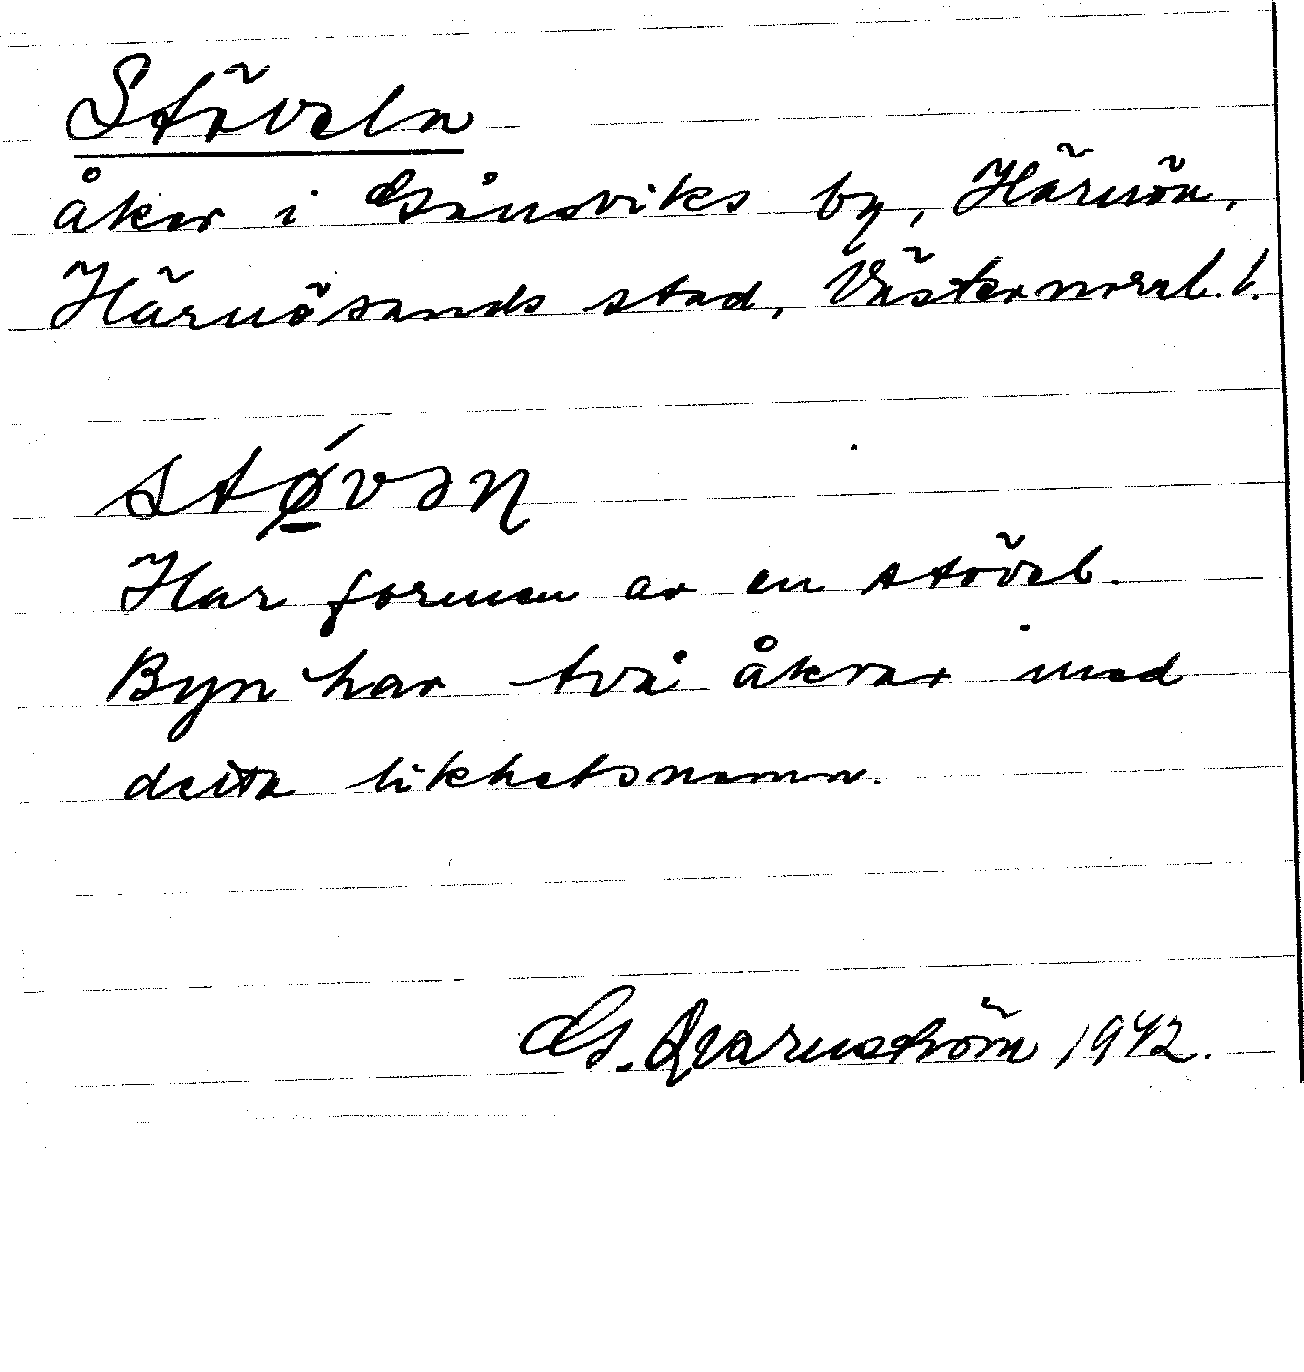 Stöveln
åker i Gånsviks by, Härnön,
Härnösands stad, Västernorrl. l.
stǿ̲vəɳ
Har formen av en stövel.
Byn har två åkrar med
detta likhetsnamn.
G. Qvarnström 1942.